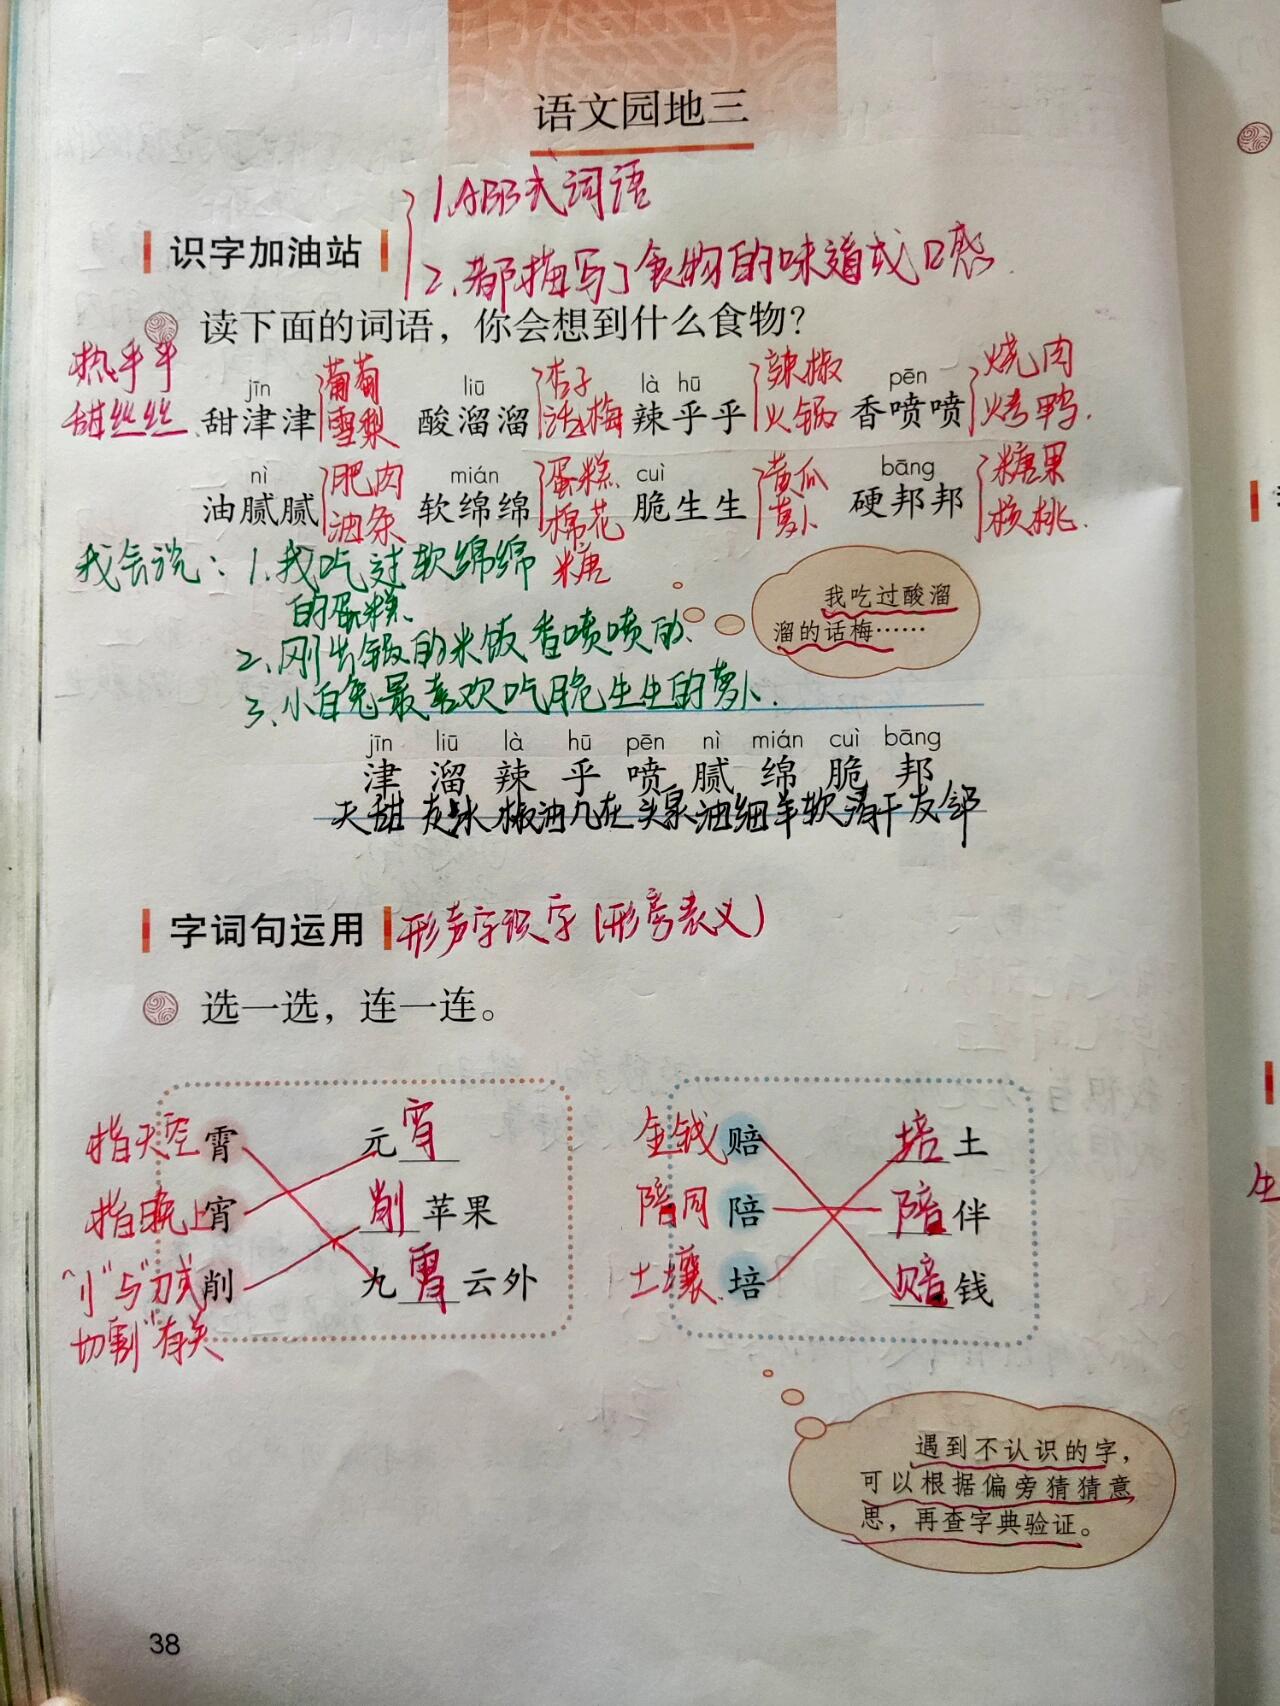 语文园地三
1.ABB式词语
识字加油站
2.都描写了食物的味道或口感.
读下面的词语，你会想到什么食物？
热乎乎
甜丝丝
jīn liū là hū pēn
甜津津 葡萄 雪梨 酸溜溜 杏子 话梅 辣乎乎 辣椒 火锅 香喷喷 烧肉 烤鸭.
nì mián cuì bāng
油腻腻 肥肉 油条 软绵绵 蛋糕 棉花糖 脆生生 黄瓜 萝卜 硬邦邦 糖果 核桃.
我会说：1.我吃过软绵绵
的蛋糕.
2.刚出锅的米饭香喷喷的.
3.小白兔最喜欢吃脆生生的萝卜.
我吃过酸溜
溜的话梅……
jīn liū là hū pēn nì mián cuì bāng
津 溜 辣 乎 喷 腻 绵 脆 邦
天甜 冰 椒油 几在头泉油细羊软清干友邻
字词句运用 形声字识字(形旁表义)
选一选，连一连。
指天空 霄 元宵
指晚上 宵 削苹果
"刂"与"刀或 削 九霄云外
切割"有关
金钱 赔 培土
陪同 陪 陪伴
土壤 培 赔钱
遇到不认识的字，
可以根据偏旁猜猜意
思，再查字典验证。
38
生